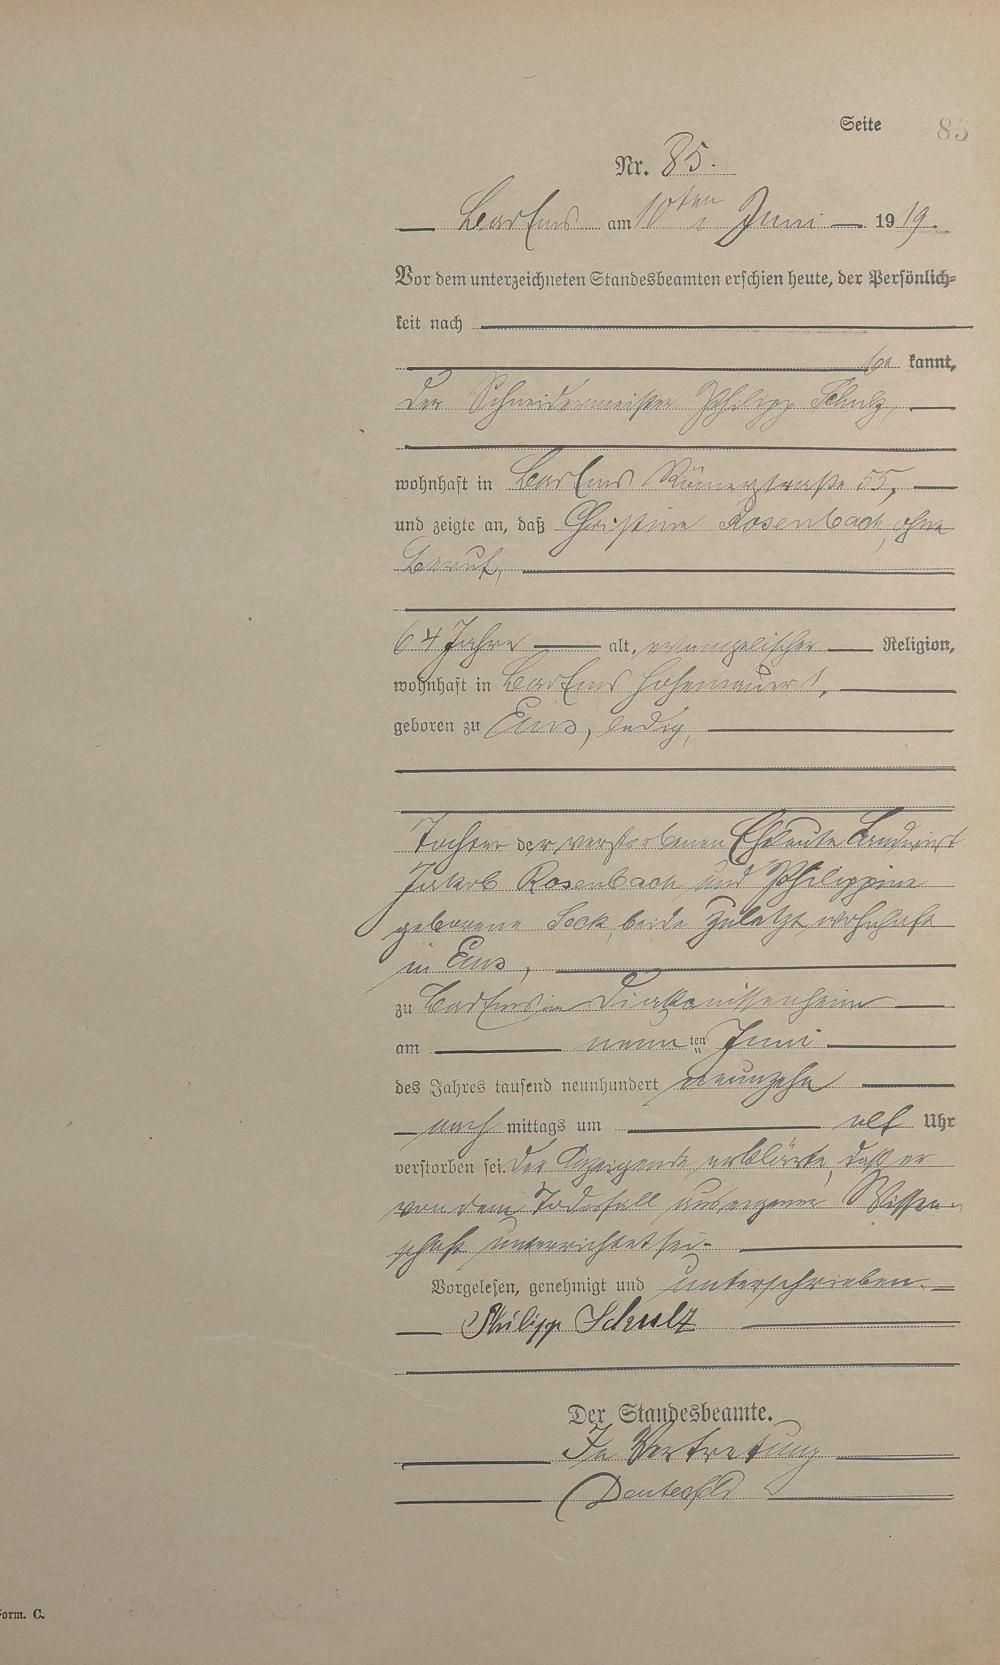 Seite 85
Nr. 85.
Bad Ems am 10ten Juni 1919.
Vor dem unterzeichneten Standesbeamten erschien heute, der Persönlich-
keit nach
be kannt,
der Schneidermeister Philipp Schulz,
wohnhaft in Bad Ems Römerstraße 55,
und zeigte an, daß Christine Rosenbach, ohne
Beruf,
64 Jahre alt, evangelischer Religion,
wohnhaft in Bad Ems Hohemauer 1,
geboren zu Ems, ledig,
Tochter der verstorbenen Eheleute Landwirt
Jakob Rosenbach und Philippine
geborene beide zuletzt wohnhaft
in Ems,
zu Bad Ems im Diakonissenheim
am neun ten Juni
des Jahres tausend neunhundert neunzehn
nach mittags um elf Uhr
verstorben sei. Der Anzeigende erklärte, daß er
von dem Todesfall aus eigener Wissen-
schaft unterrichtet sei.
Vorgelesen, genehmigt und unterschrieben.
Philipp Schulz
Der Standesbeamte.
In Vertretung
Form. C.